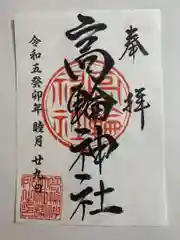 奉拝
高輪神社
令和五癸卯年 睦月 廿九日